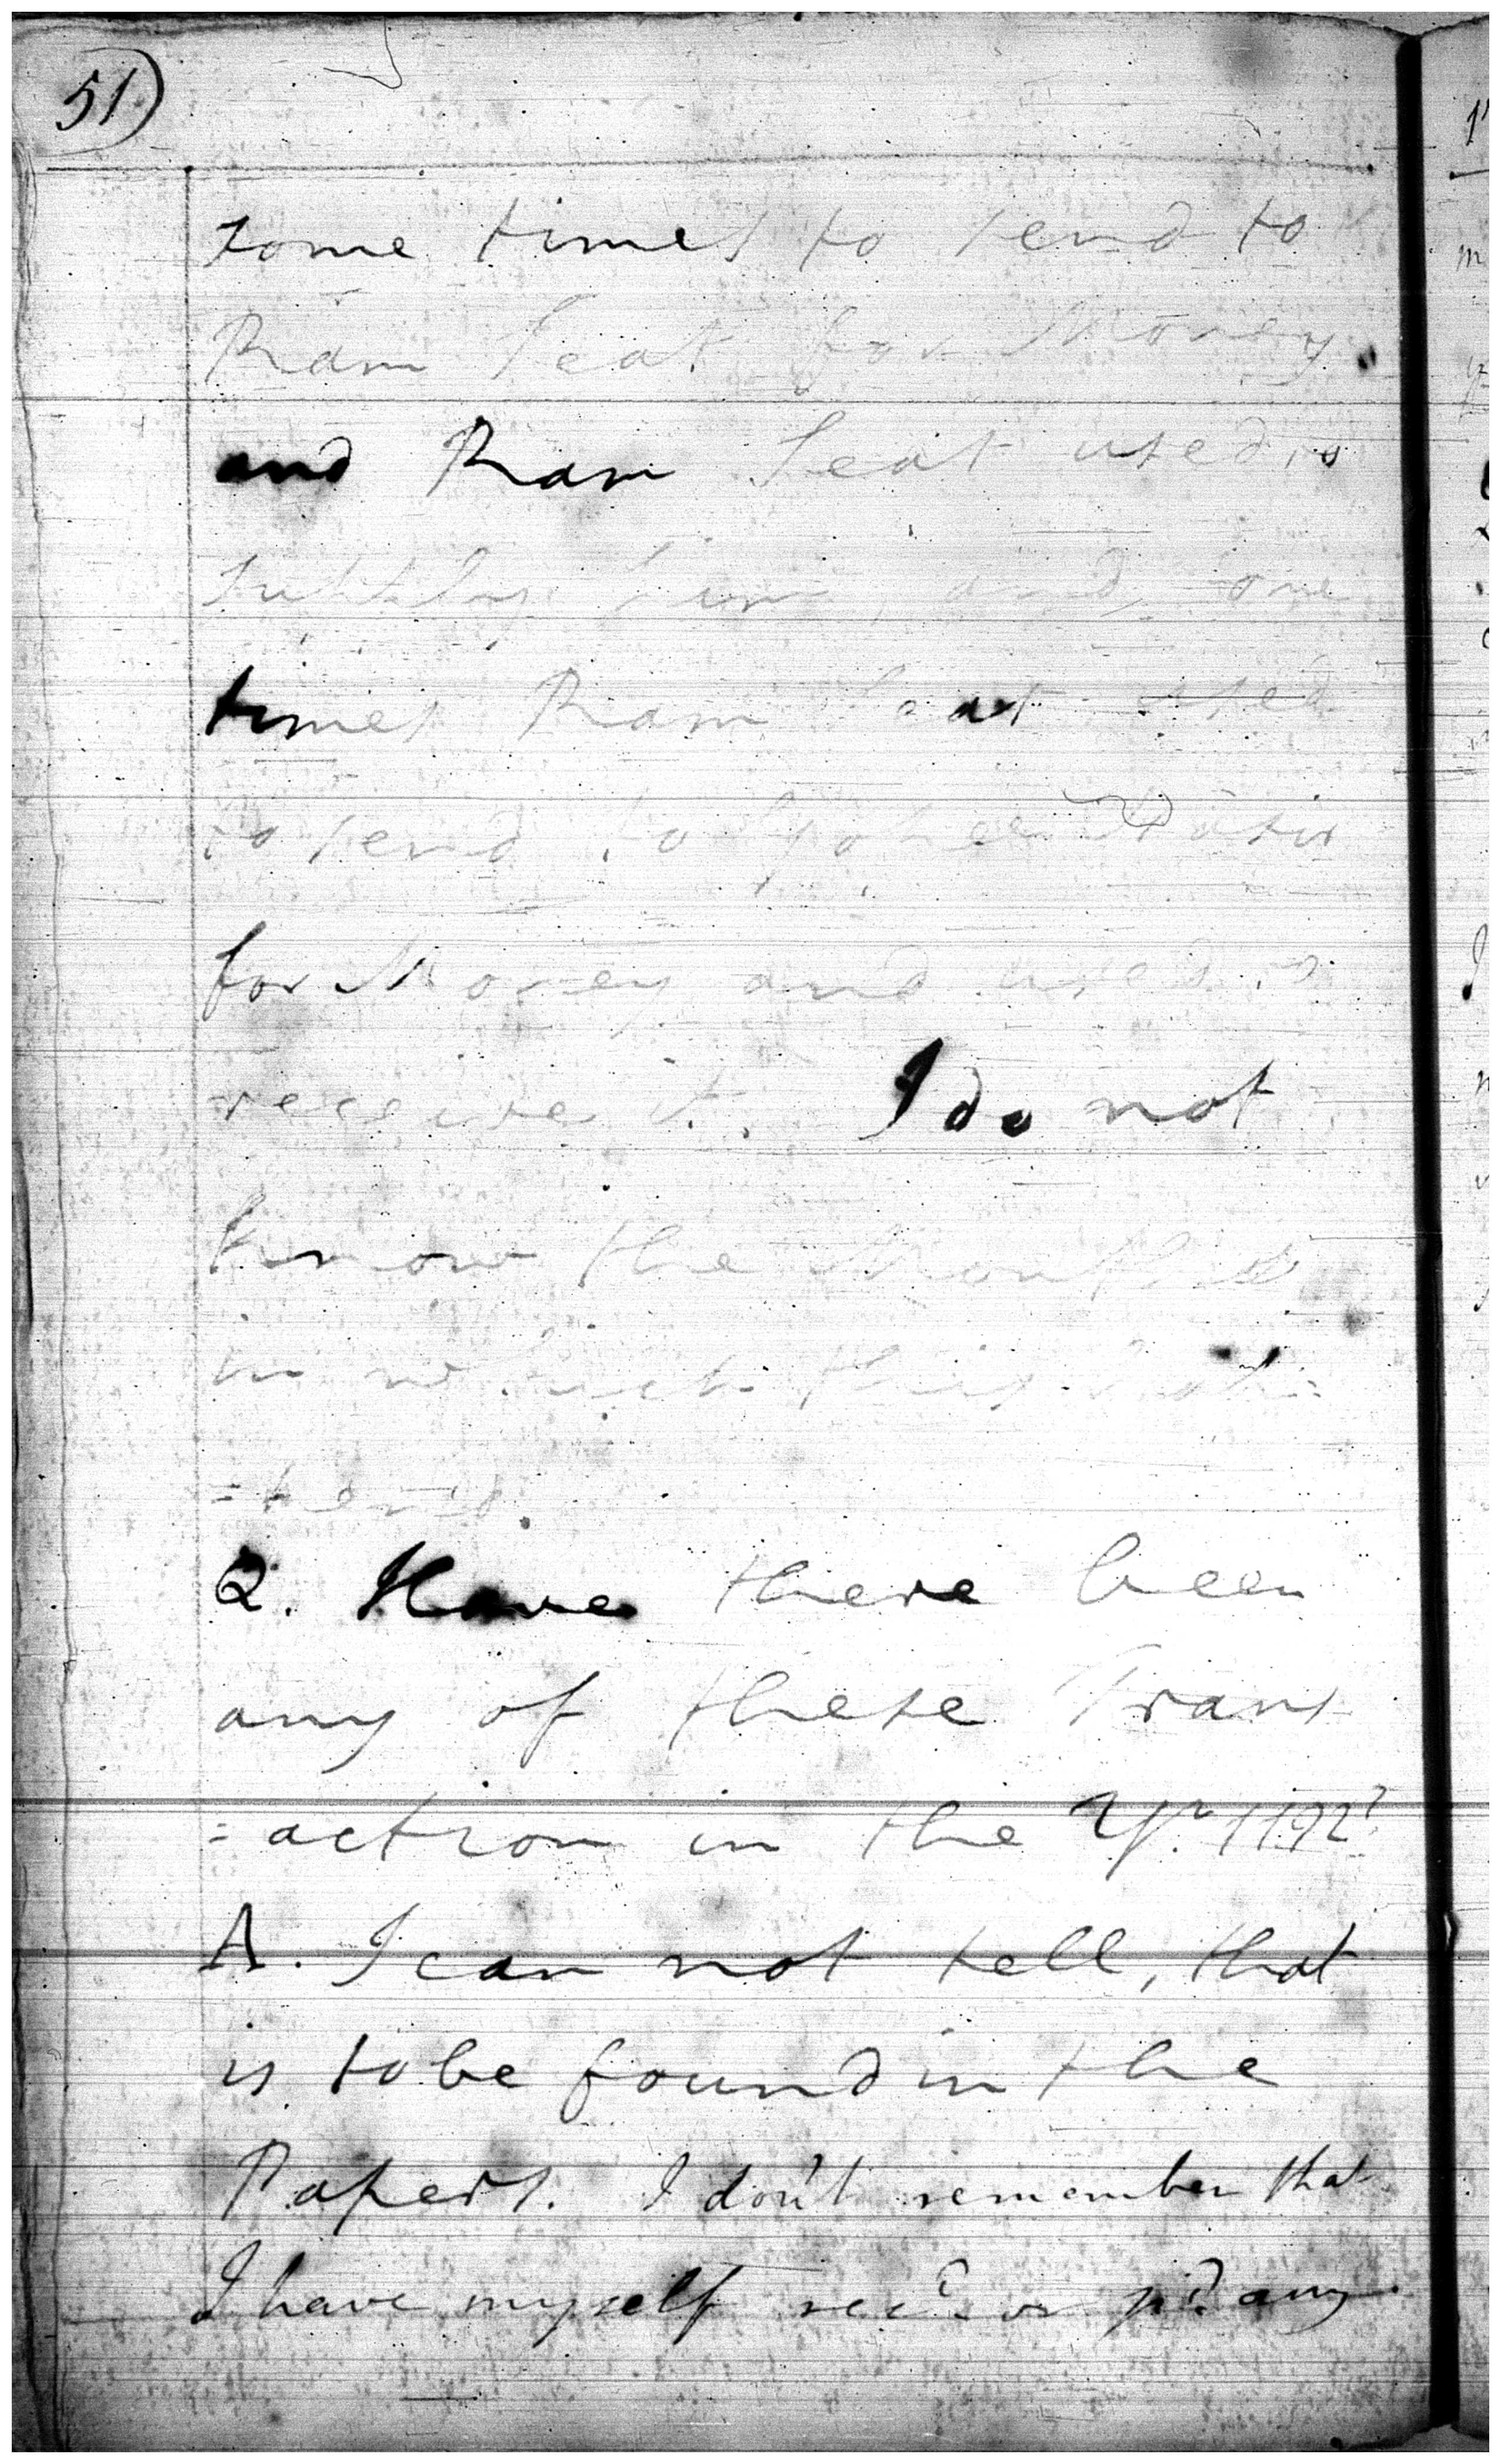 51)
some times to send to
Ram Seat for Money
and Ram Seat used to
supply him, and some
times Ram Seat used
to send to
for Money and used to
receive it. I do not
know the Months
in which this
Q. Have there been
any of these Trans
=action in the Yr. 1192?
A. I can not tell, that
is to be found in the
Papers. I don't remember that
I have myself recd. or pd. any